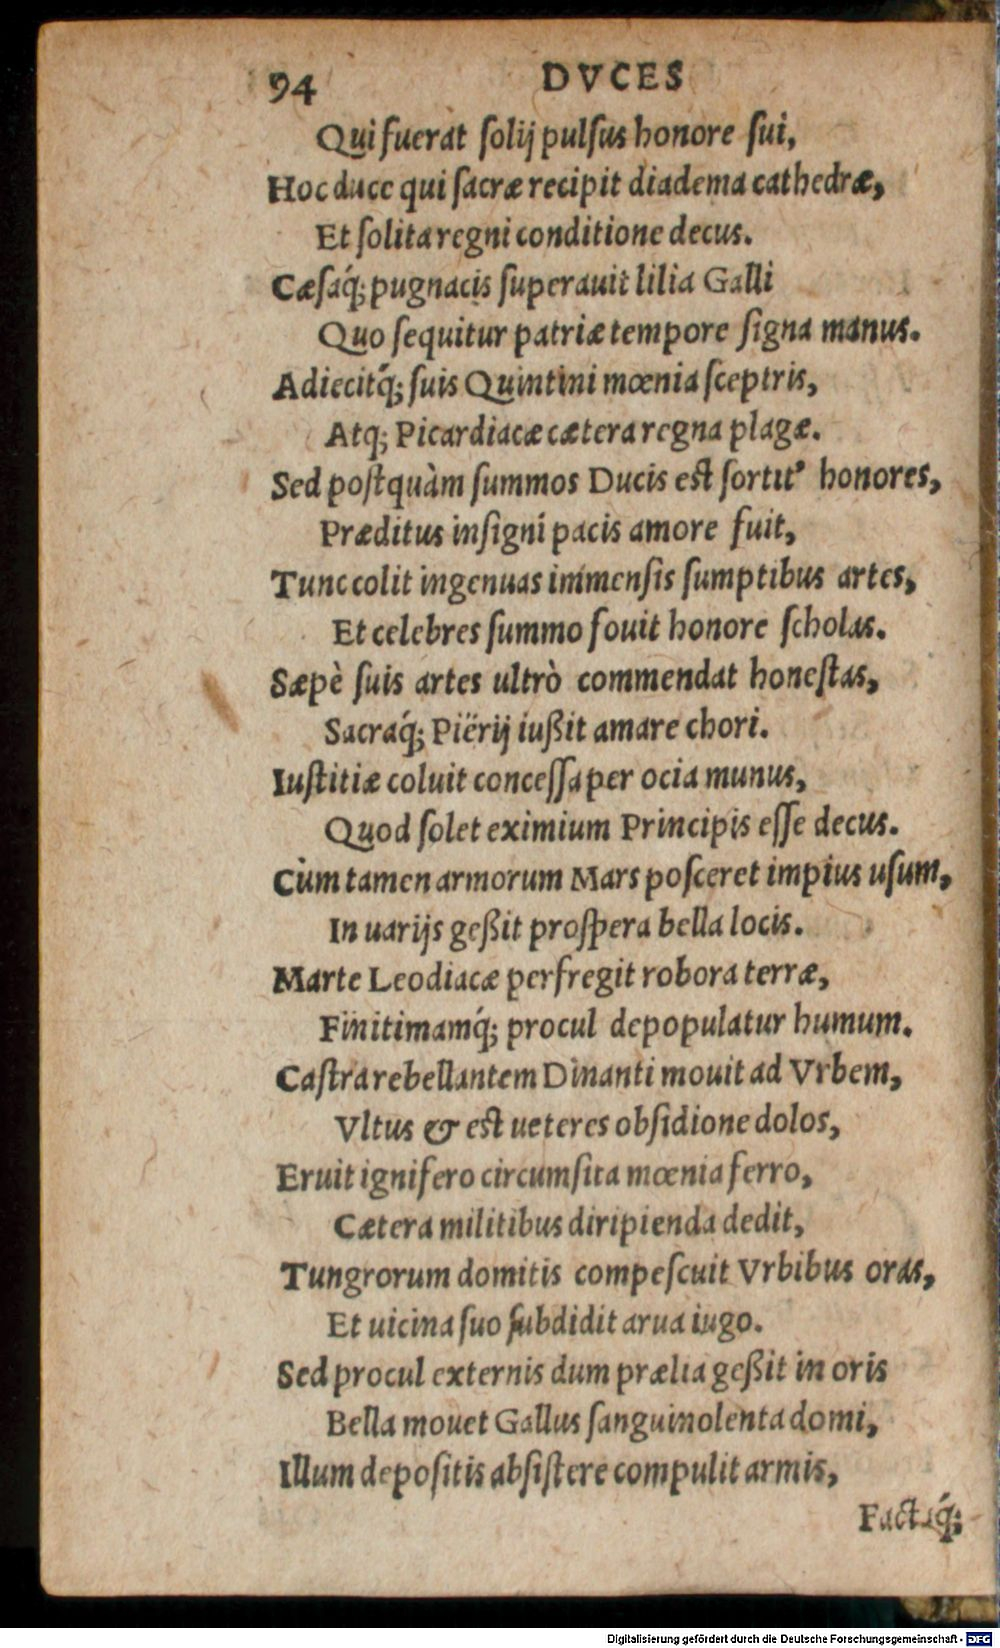 94 DVCES
Qui fuerat ſolij pulſus honore ſui,
Hoc duce qui ſacræ recipit diadema cathedræ,
Et ſolita regni conditione decus.
Cæſaq́; pugnacis ſuperauit lilia Galli
Quo ſequitur patriæ tempore ſigna manus.
Adiecitq́; ſuis Quintini mœnia ſceptris,
Atq; Picardiacæ cætera regna plagæ.
Sed poſtquàm ſummos Ducis eſt ſortitꝰ honores,
Præditus inſigni pacis amore fuit,
Tunc colit ingenuas immenſis ſumptibus artes,
Et celebres ſummo fouit honore ſcholas.
Sæpè ſuis artes ultrò commendat honeſtas,
Sacraq́; Piërij iußit amare chori.
Iuſtitiæ coluit conceſſa per ocia munus,
Quod ſolet eximium Principis eſſe decus.
Cùm tamen armorum Mars poſceret impius uſum,
In uarijs geßit proſpera bella locis.
Marte Leodiacæ perfregit robora terræ,
Finitimamq́; procul depopulatur humum.
Caſtra rebellantem Dinanti mouit ad Vrbem,
Vltus & eſt ueteres obſidione dolos,
Eruit ignifero circumſita mœnia ferro,
Cætera militibus diripienda dedit,
Tungrorum domitis compeſcuit Vrbibus oras,
Et uicina ſuo ſubdidit arua iugo.
Sed procul externis dum prælia geßit in oris
Bella mouet Gallus ſanguinolenta domi,
Illum depoſitis abſiſtere compulit armis,
Factaq́;
Digitalisierung gefördert durch die Deutsche Forschungsgemeinschaft - DFG